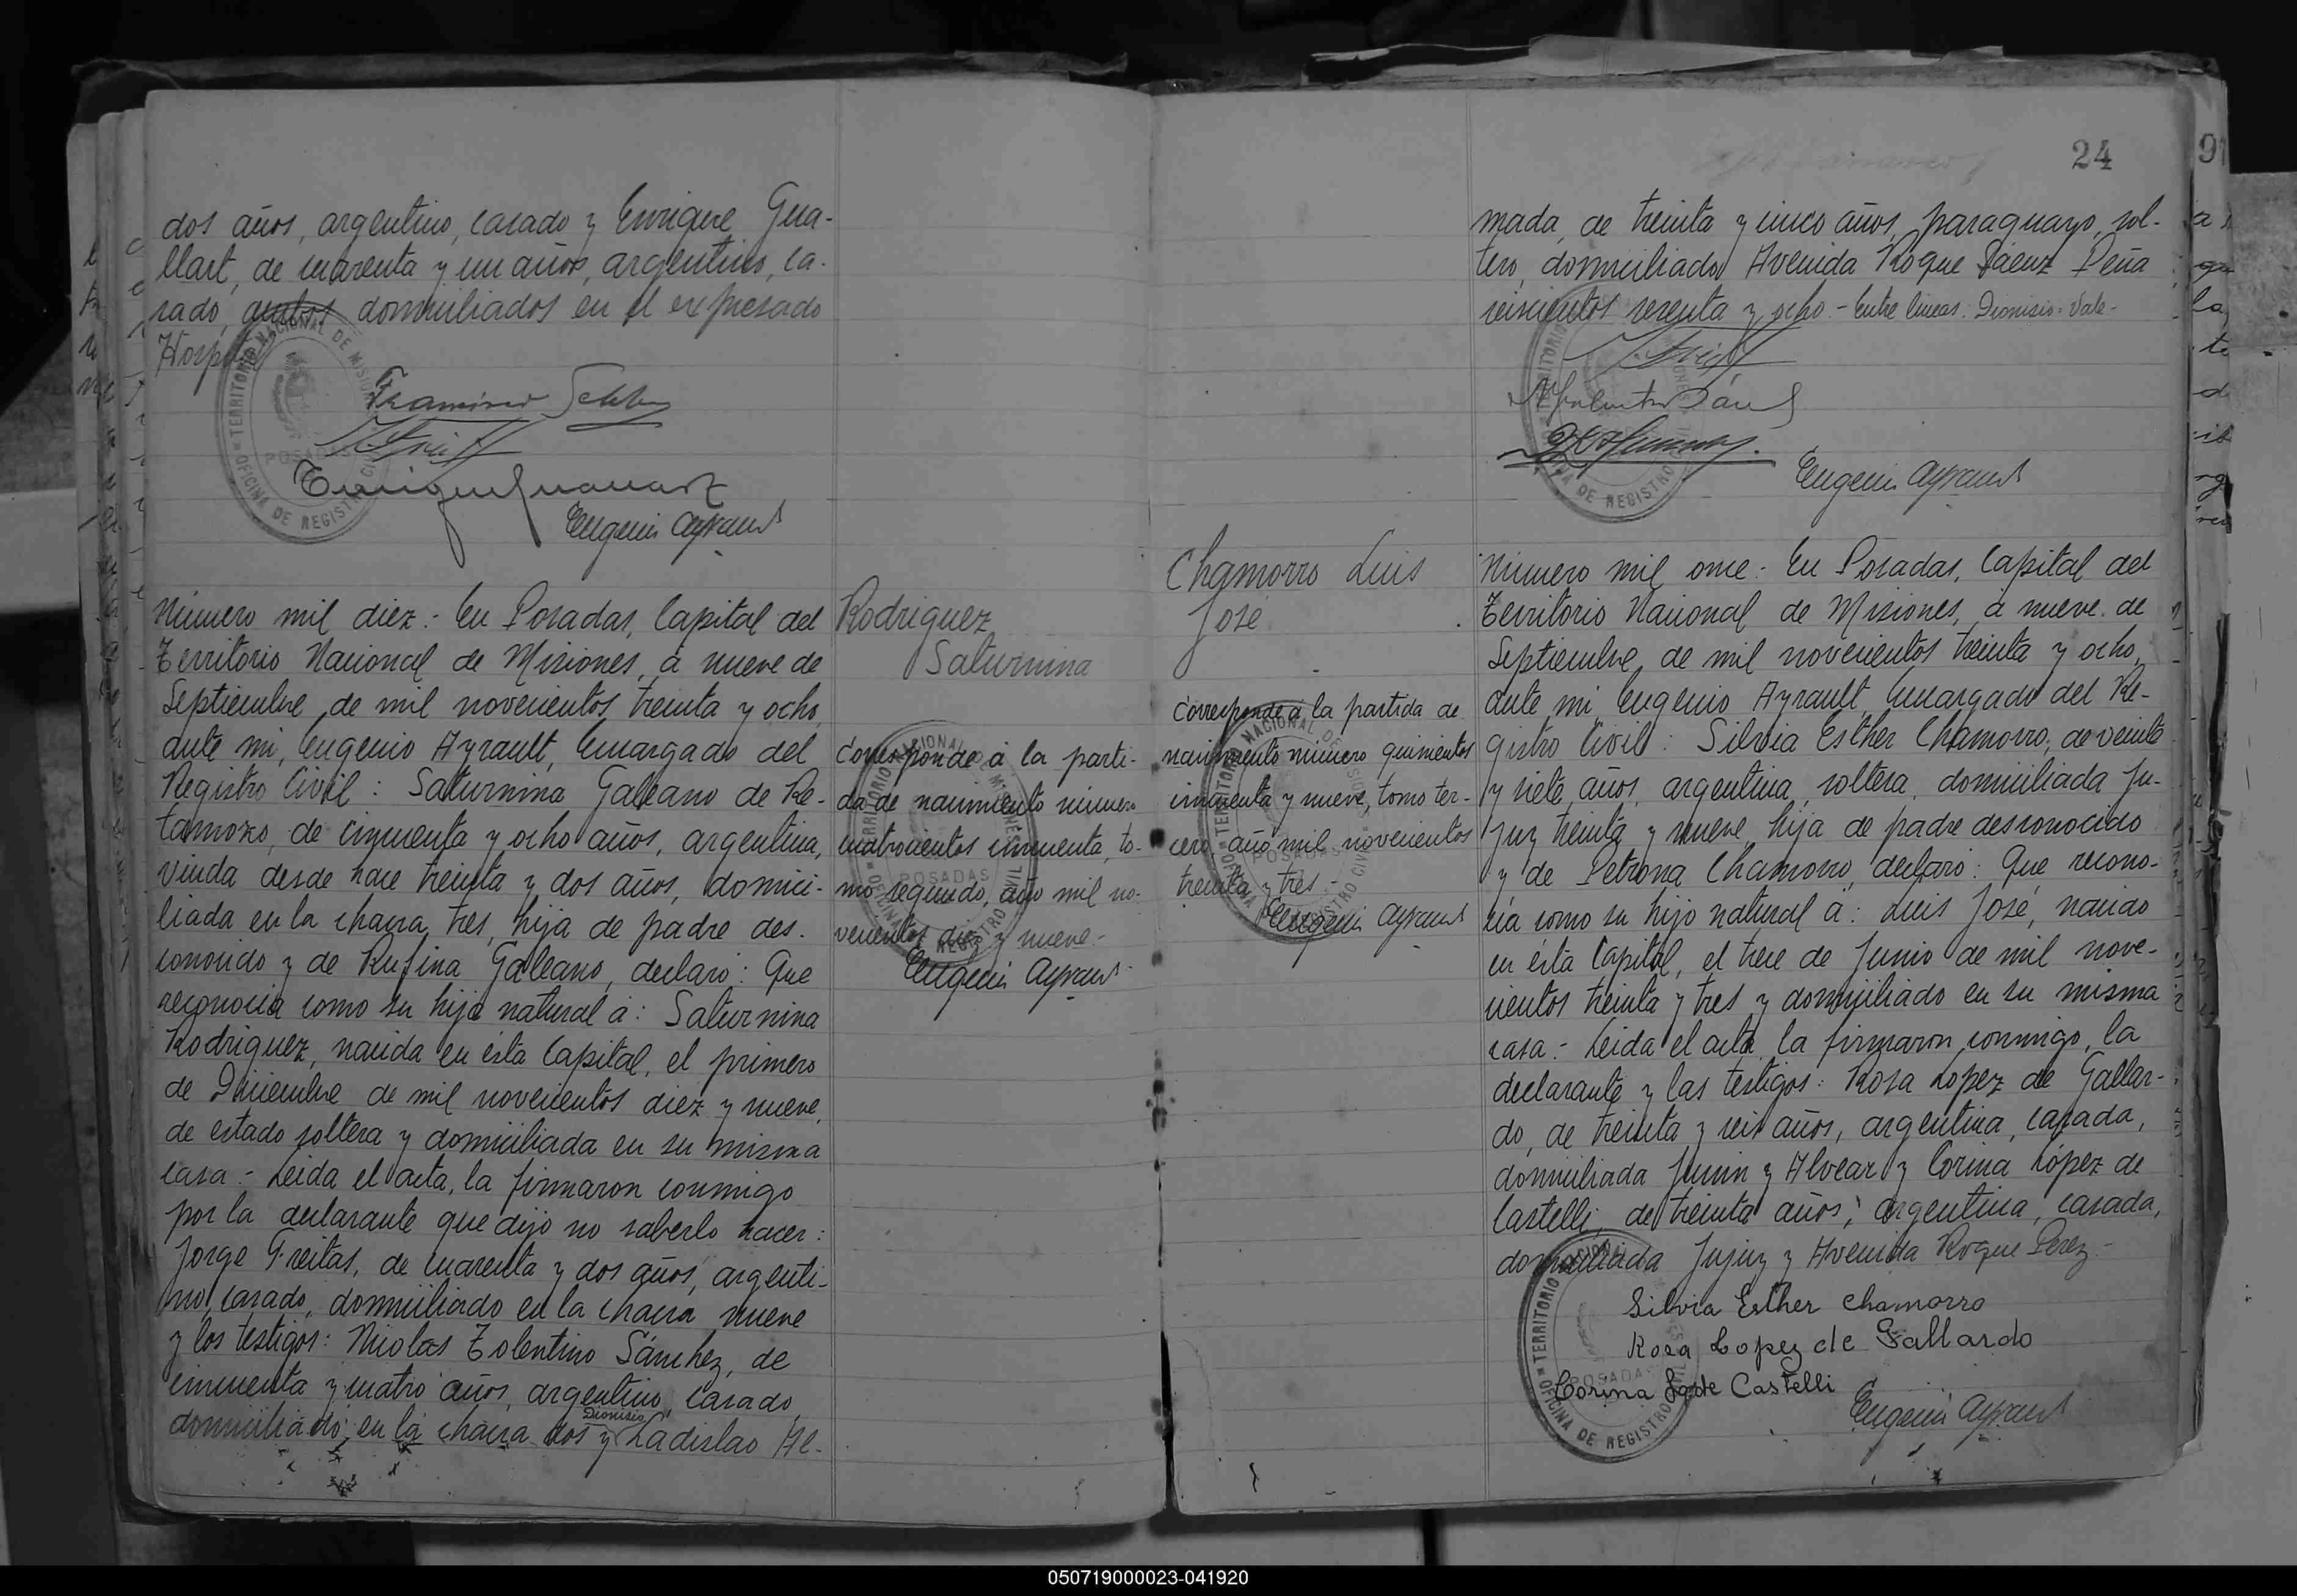 dos años, argentino, casado y Enrique Gua-
llart, de cuarenta y un años, argentino, ca-
sado, ambos domiciliados en el expresado
Hospital
Enrique Guallart
Eugenio Ayrault
Número mil diez.- En Posadas, Capital del
Territorio Nacional de Misiones, á nueve de
Septiembre de mil novecientos treinta y ocho,
ante mi, Eugenio Ayrault, Encargado del
Registro Civil: Saturnina Galeano de Re-
tamozo, de cincuenta y ocho años, argentina,
viuda desde hace treinta y dos años, domici-
liada en la chacra tres, hija de padre des-
conocido y de Rufina Galeano, declaró: Que
reconocia como su hija natural á: Saturnina
Rodriguez, nacida en ésta Capital, el primero
de Diciembre de mil novecientos diez y nueve,
de estado soltera y domiciliada en su misma
casa.- Leida el acta, la firmaron conmigo
por la declarante que dijo no saberlo hacer:
Jorge Freitas, de cuarenta y dos años, argenti-
no, casado, domiciliado en la chacra nueve
y los testigos: Nicolas Tolentino Sánchez, de
cincuenta y cuatro años, argentino, casado,
Dionisio
domiciliado en la chacra dos y Ladislao Al-
Rodriguez
Saturnina
Corresponde á la parti-
da de nacimiento número
cuatrocientos cincuenta, to-
mo segundo, año mil no-
vecientos diez y nueve.-
Eugenio Ayrault
24
mada, de treinta y cinco años, paraguayo, sol-
tero, domiciliado Avenida Roque Sáenz Peña
seiscientos sesenta y ocho.- Entre lineas: Dionisio: Vale-
Eugenio Ayrault
Chamorro Luis
José
Corresponde á la partida de
nacimiento número quinientos
cincuenta y nueve, tomo ter-
cero, año mil novecientos
treinta y tres-
Eugenio Ayrault
Número mil once.- En Posadas, Capital del
Territorio Nacional de Misiones, á nueve de
Septiembre de mil novecientos treinta y ocho,
ante mi, Eugenio Ayrault, Encargado del Re-
gistro Civil: Silvia Esther Chamorro, de veinte
y siete años, argentina, soltera, domiciliada Ju-
juy treinta y nueve, hija de padre desconocido
y de Petrona Chamorro, declaró: Que recono-
cia como su hijo natural á: Luis José, nacido
en ésta Capital, el trece de Junio de mil nove-
cientos treinta y tres y domiciliado en su misma
casa.- Leida el acta, la firmaron conmigo, la
declarante y las testigos: Rosa Lopez de Gallar-
do, de treinta y seis años, argentina, casada,
domiciliada Junin y Alvear y Corina López de
Castelli, de treinta años, argentina, casada,
domiciliada Jujuy y Avenida Roque Perez.-
Silvia Esther Chamorro
Rosa Lopez de Gallardo
Corina L. de Castelli
Eugenio Ayrault
TERRITORIO NACIONAL DE MISIONES
OFICINA DE REGISTRO CIVIL
POSADAS
050719000023-041920